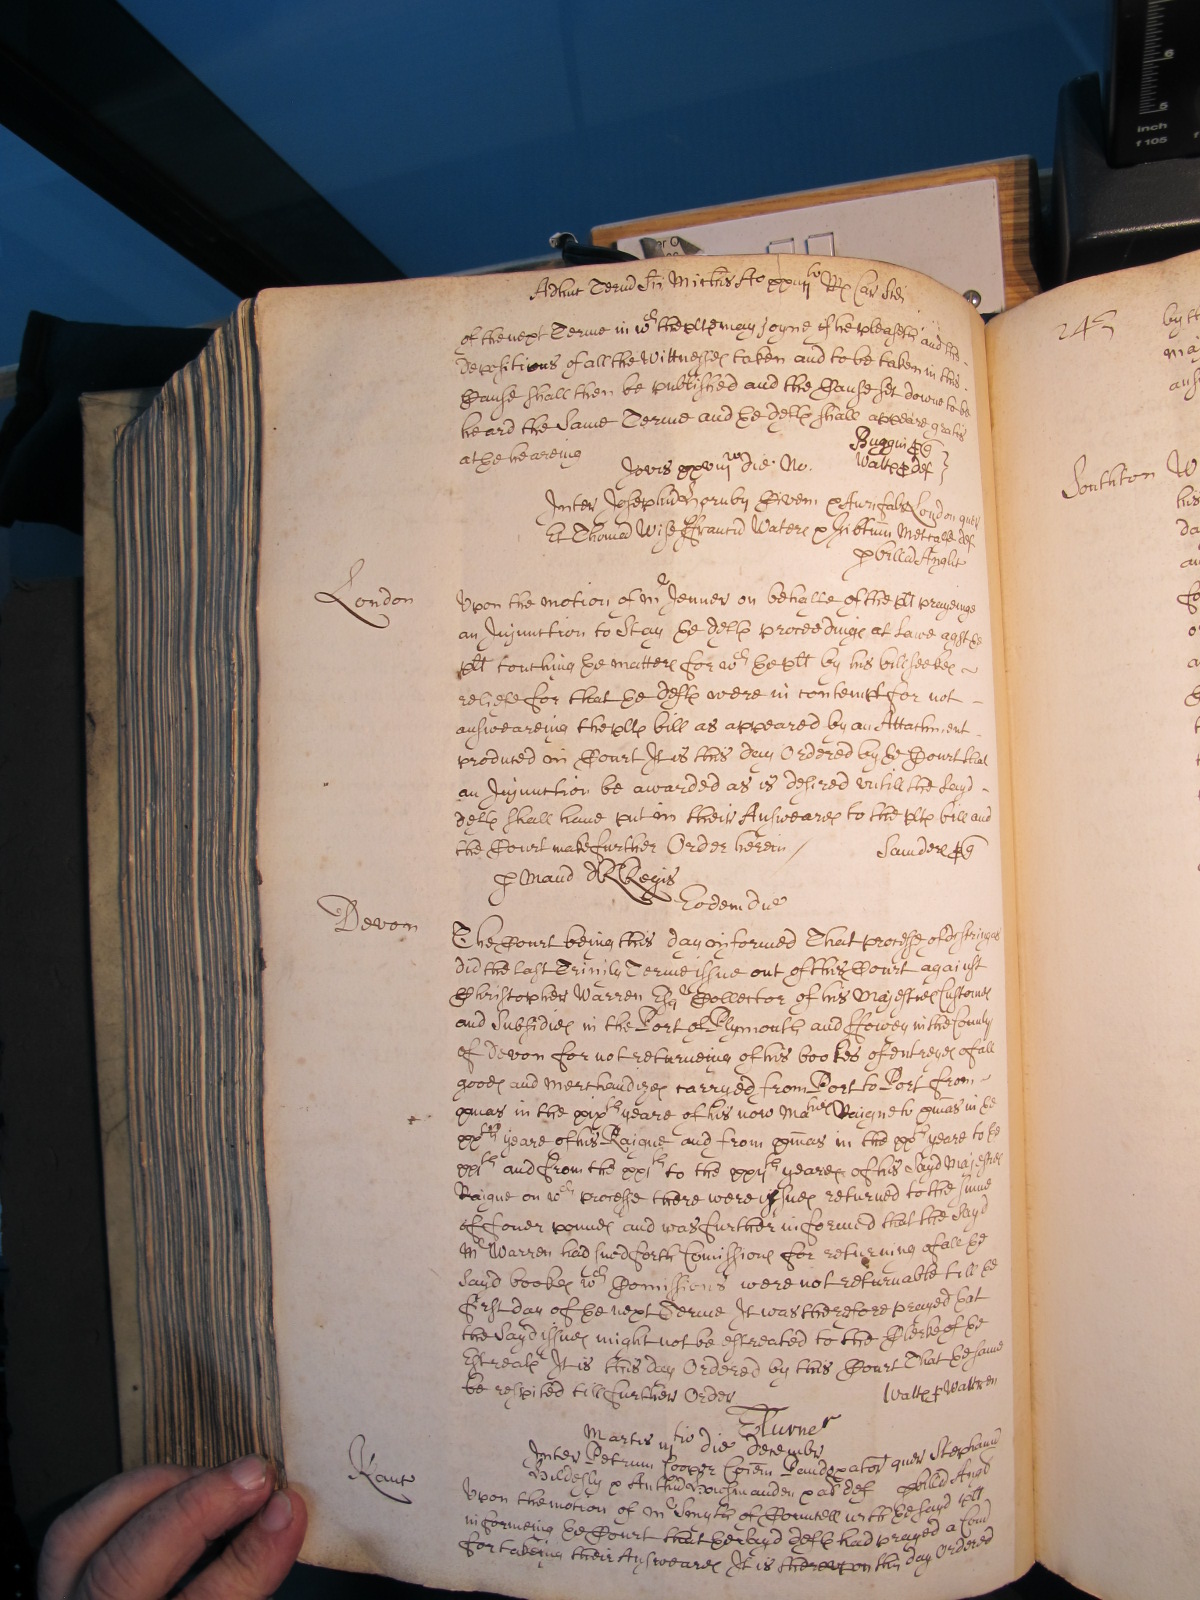 Adhuc Termd Sti Mich'is Ao xxiii Rx Car Sc'di
of the next Terme in wch the plt may joyne if he pleaseth and the
depositions of all the Wittnesses taken and to be taken in this
Cause shall then be published and the Cause set downe to be
heard the Same Terme and ye defts shall appeare gratis
at ye heareing
Buggin p q
Walt p def
Jovis die No.
Inter Josephu Hornby Civem & Aurifabr London quer
Et Thomd Wise Francu Waters & Metcalfe def
p billd Anglic
London
Upon the motion of mr Jenner on behalfe of the plt prayeinge
an Injunction to Stay ye defts proceedings at Lawe agst ye
plt touching ye matters for wch ye plt by his bill seekes
releife for that ye defts were in contempt for not
answeareing the plts bill as appeared by an Attachment
produced in Court It is this day Ordered by ye Court that
an Injunction be awarded as is desired untill the Sayd
defts shall have put in their Answeares to the plts bill and
the Court make further Order herein
Saunders p q
p Mand Regis
Eodem die
Devon
The Court being this day informed That processe of distringas
did the last Trinity Terme issue out of this Court against
Christopher Warren Esqr Collector of his Majesties Customes
and Subsidies in the Port of Plymouth and Fowey in the County
of Devon for not returneing of his bookes of entryes of all
goods and Merchandizes carryed from Port to Port from
xmas in the xixth yeare of his now Maties Raigne to xmas in ye
xxth yeare of his Raigne and from xmas in the xxth yeare to ye
xxith and from the xxith to the xxiith yeares of his Sayd Majesties
Raigne on wch processe there were issues returned to the Sume
of fower pounds and was further informed that the Sayd
Mr Warren had sued forth Comissions for returning of all ye
Sayd bookes wch Comissions were not returnable till ye
first day of ye next Terme It was therefore prayed yat
the Sayd issues might not be estreated to the Clerke of ye
Estreats It is this day Ordered by this Court That ye same
be respited till further Order
Walt p Warren
Turner
Martis die Decembr
Kanc
Inter Petrum Cooper quer Stephanu
& Anthu & al def p billd Angl
Upon the motion of mr Smyth of Councell with ye sayd plt
informeing ye Court that ye sayd defts had prayed a Com
for takeing their Answeares It is thereupon this day Ordered
245
Southton
inch
f 105
6
5